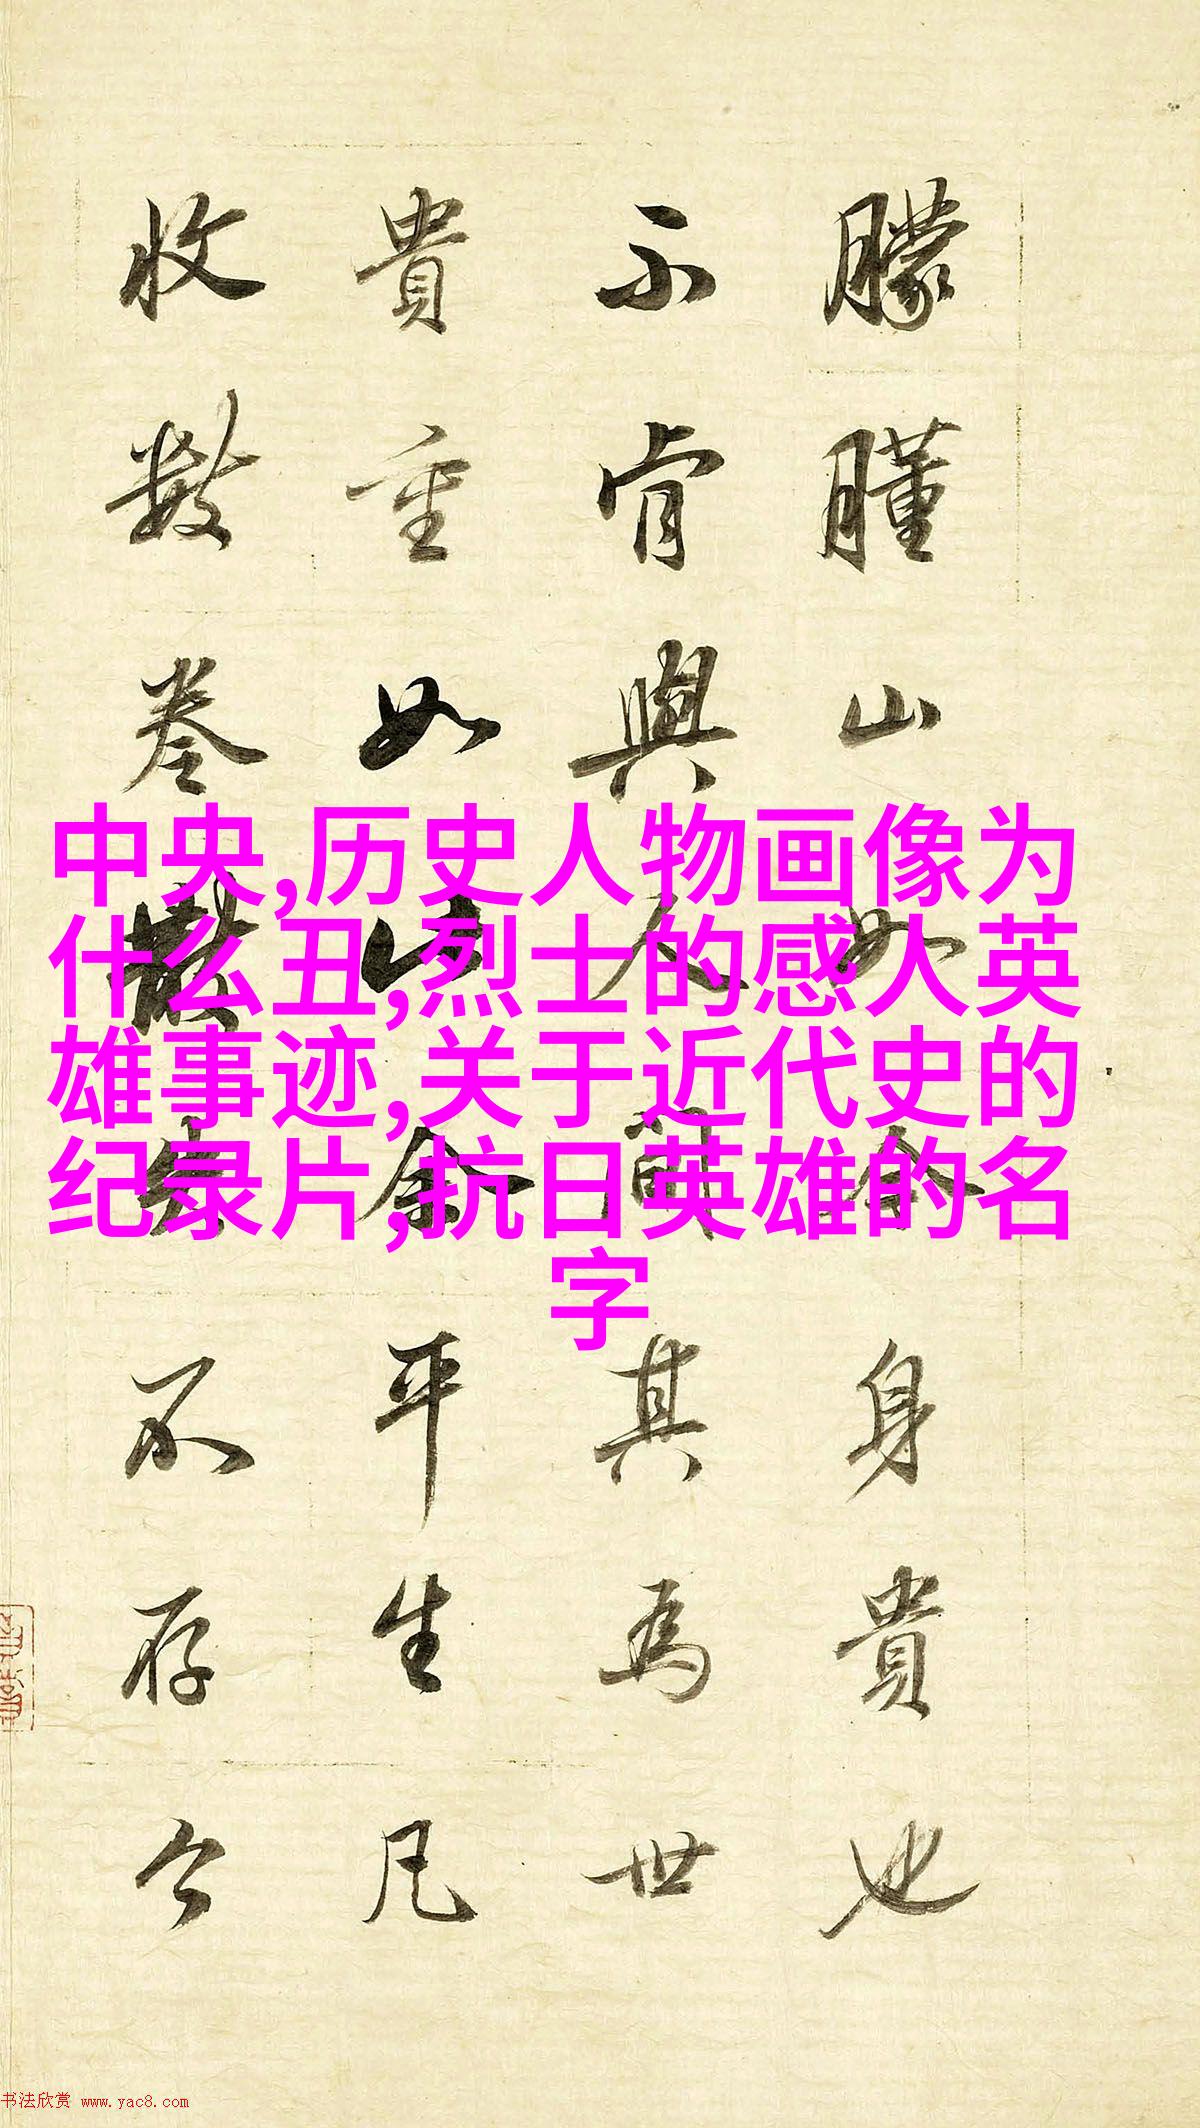 中央,历史人物画像为
什么丑,烈士的感人英
雄事迹,关于近代史的
纪录片,抗日英雄的名
字
朦朣山身貴也
不肯與人其為世
貴重如此余平生凡
收數卷不存今
书法欣赏 www.yac8.com